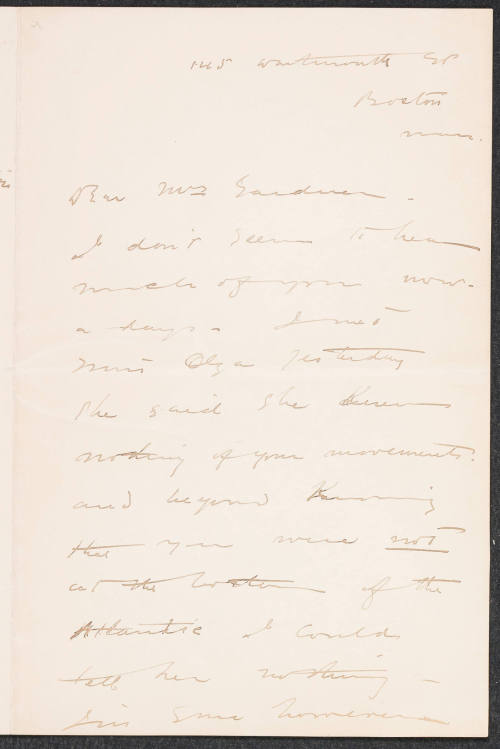 Dartmouth St
Boston
Mass.
Dear Mrs Gardner.
I don't seem to hear
much of you now-
a days. I met
Miss Olga yesterday
She said she knew
nothing of your movements.
and beyond knowing
that you were not
at the bottom of the
Atlantic I could
tell her nothing –
sure however